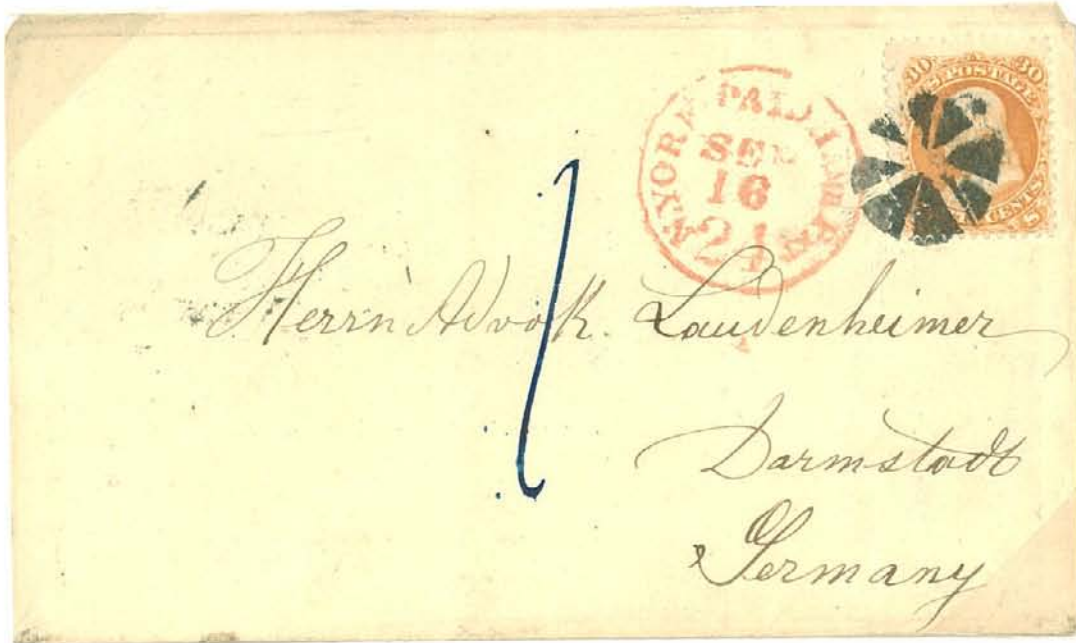 30 30
U.S. POSTAGE
CENTS
N. YORK PAID
SEP
16
24
1
Herrn Advok. Laudenheimer
Darmstadt
Germany